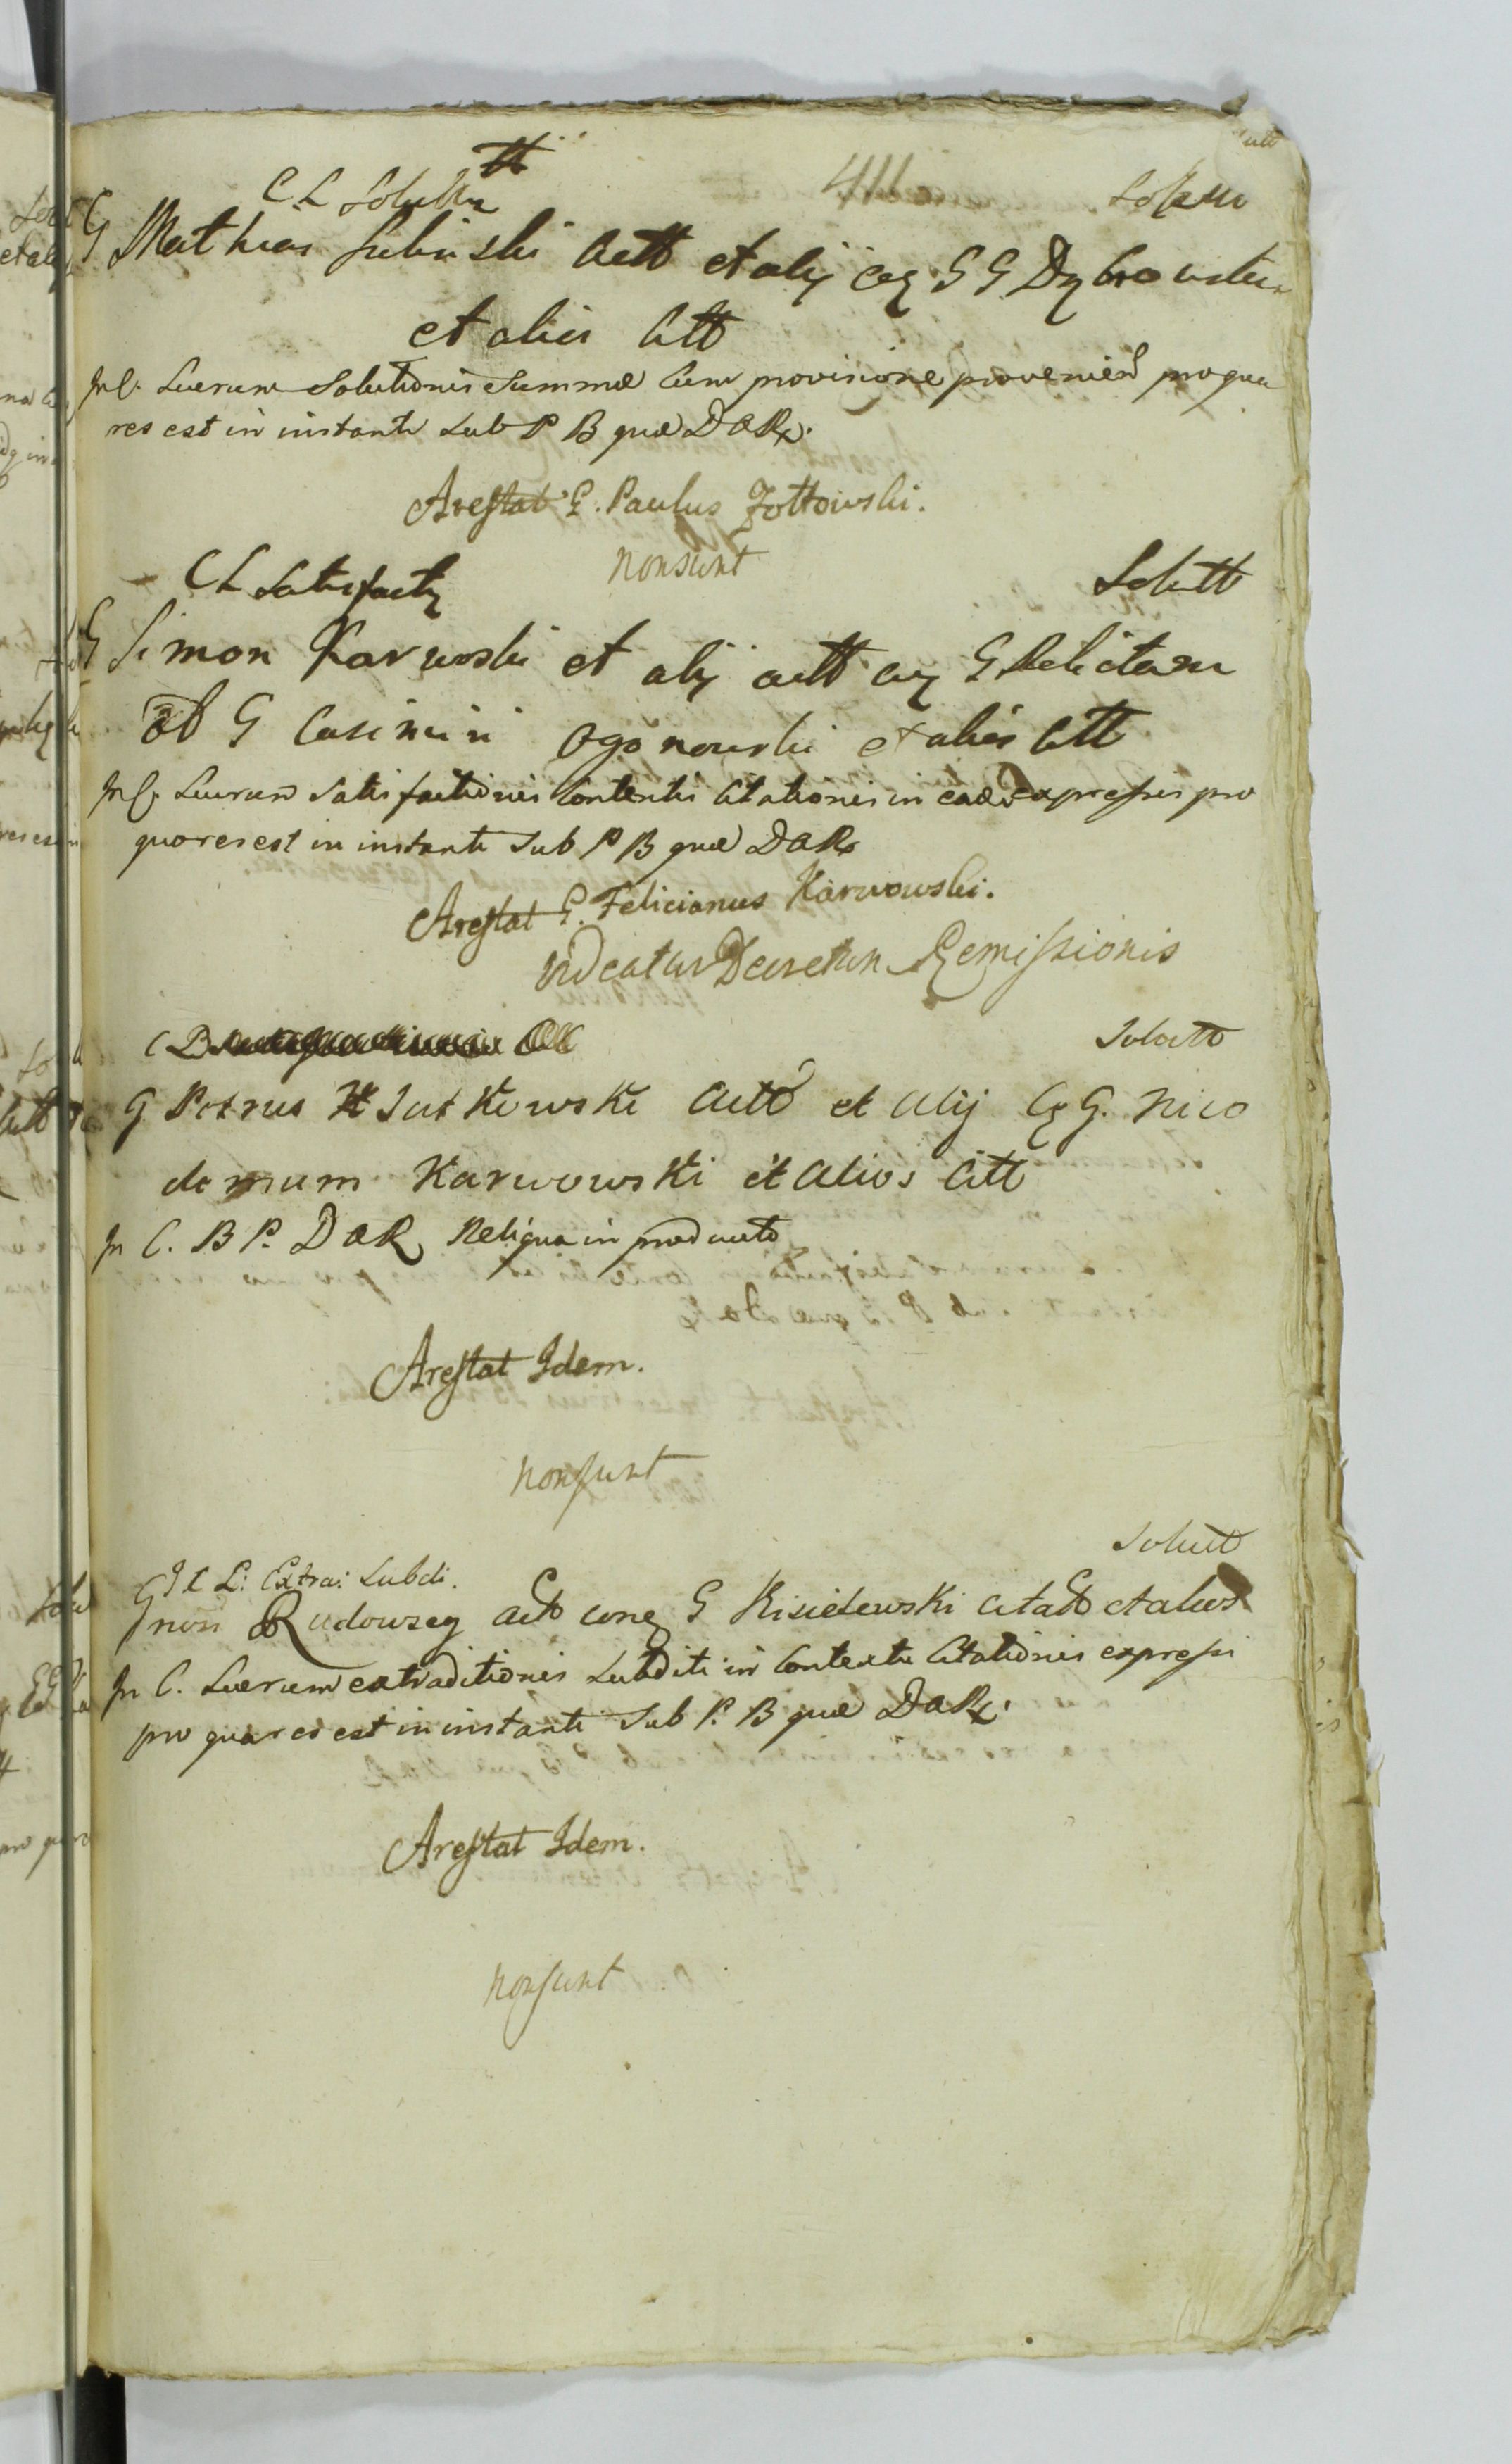 C L Solutt
G Mathias Lubinski Actt et alij Cq G G Dybrowskin
et alios Citt
In C. Lucrum Solutionis Summæ Cum provisione proveniend pro qua
res est in instanti sub P B quæ D a Rx.
Arestat G. Paulus Zottowski.
nonsunt
C L Satisfactq Solutt
G Simon Karwoski et alij actt cq G Relictam
ol G Casimiri Ogonowski et alios Citt
In C. Lucrum Satisfactionis Contentis Citationis in eadem expressis pro
quo res est in instanti Sub P B quæ D a Rx
Arestat G. Felicianus Karwowski.
Videatur Decretum Remissionis
C B Solutt
G Petrus Sutkowski Actt et alij Cq G. Nico
demum Karwowski et alios Citt
In C. B P. D a R, Reliqua in producto
Arestat Idem.
nonsunt
Solutt
J C L: Extra: Subdi.
Gnosi Rudowscy Act conq G Kisielewski Citatt et alios
In C. Lucrum extraditionis Subditi in Contextu Citationis expressi
pro qua res est in instanti Sub P. B quæ D a Rx.
Arestat Idem.
nonsunt